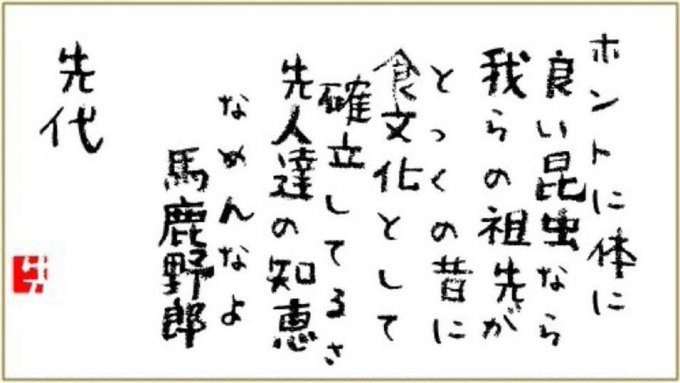 ホントに体に
良い昆虫なら
我らの祖先が
とっくの昔に
食文化として
確立してるさ
先人達の知恵
なめんなよ
馬鹿野郎
先代